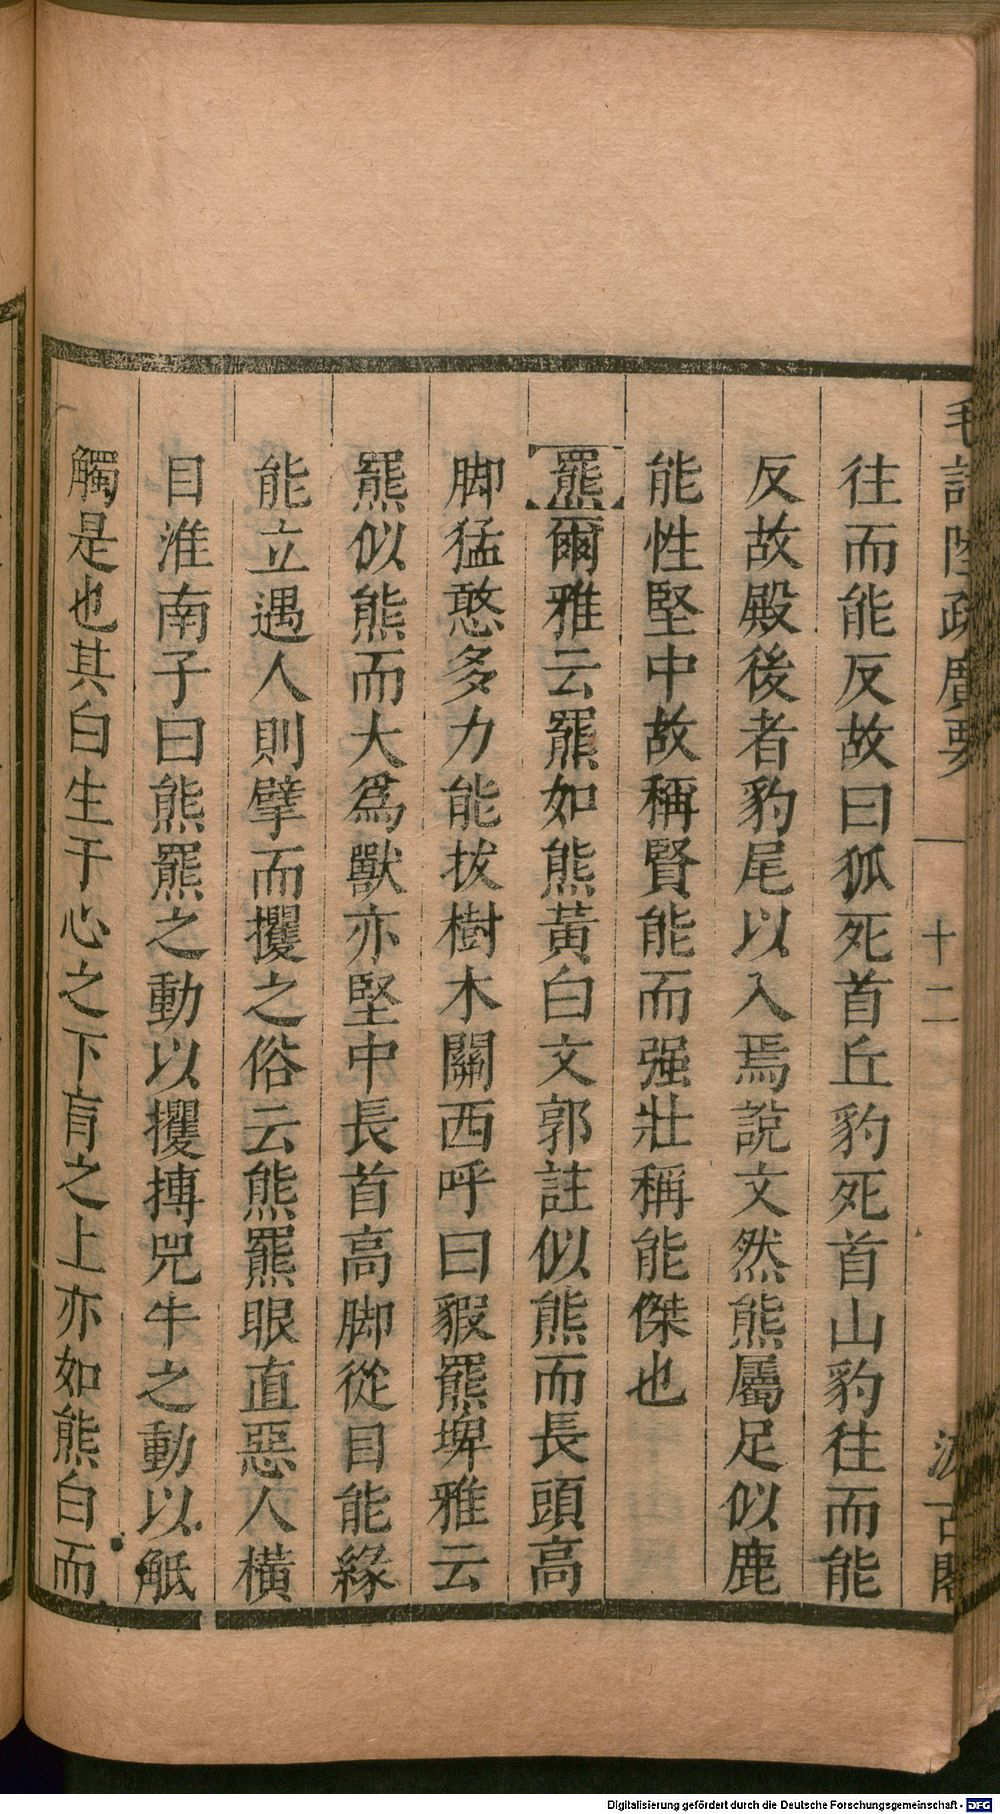 毛詩陸疏廣要
十二
汲古閣
往而能反故曰狐死首丘豹死首山豹往而能
反故殿後者豹尾以入焉說文然熊屬足似鹿
能性堅中故稱賢能而强壯稱能傑也
羆爾雅云羆如熊黃白文郭註似熊而長頭高
脚猛憨多力能拔樹木關西呼曰貑羆埤雅云
羆似熊而大爲獸亦堅中長首高脚從目能緣
能立遇人則擘而攫之俗云熊羆眼直惡人橫
目淮南子曰熊羆之動以攫搏兕牛之動以觝
觸是也其白生于心之下肓之上亦如熊白而
Digitalisierung gefördert durch die Deutsche Forschungsgemeinschaft - DFG